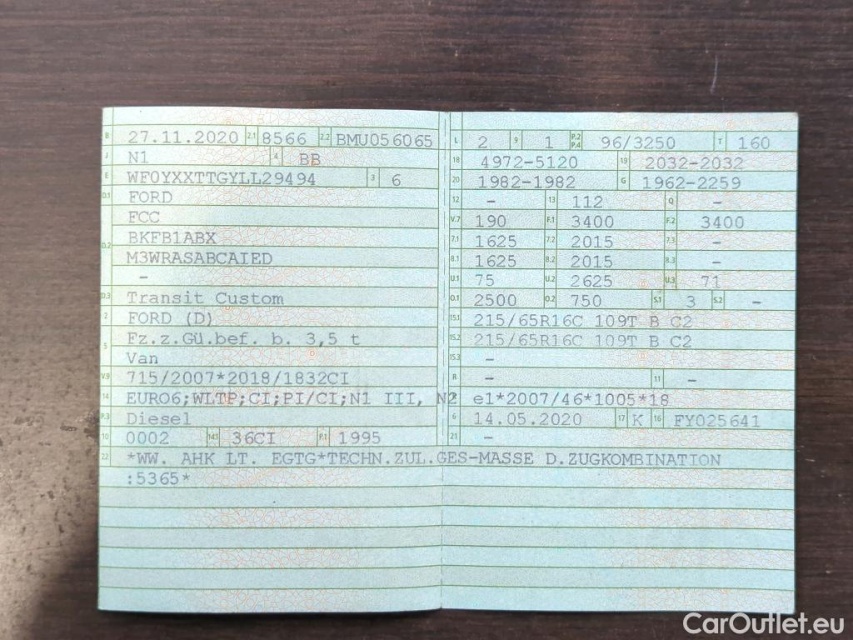 B 27.11.2020 2.1 8566 2.2 BMU056065
J N1 4 BB
E WF0YXXTTGYLL29494 3 6
D.1 FORD
FCC
D.2 BKFB1ABX
M3WRASABCAIED
-
D.3 Transit Custom
2 FORD (D)
5 Fz.z.Gü.bef. b. 3,5 t
Van
V.9 715/2007*2018/1832CI
14 EURO6;WLTP;CI;PI/CI;N1 III, N2
P.3 Diesel
10 0002 14.1 36CI P.1 1995
L 2 9 1 P.2 P.4 96/3250 T 160
18 4972-5120 19 2032-2032
20 1982-1982 G 1962-2259
12 - 13 112 Q -
V.7 190 F.1 3400 F.2 3400
7.1 1625 7.2 2015 7.3 -
8.1 1625 8.2 2015 8.3 -
U.1 75 U.2 2625 U.3 71
O.1 2500 O.2 750 S.1 3 S.2 -
15.1 215/65R16C 109T B C2
15.2 215/65R16C 109T B C2
15.3 -
R - 11 -
K e1*2007/46*1005*18
6 14.05.2020 17 K 16 FY025641
21 -
22 *WW. AHK LT. EGTG*TECHN.ZUL.GES-MASSE D.ZUGKOMBINATION
:5365*
CarOutlet.eu